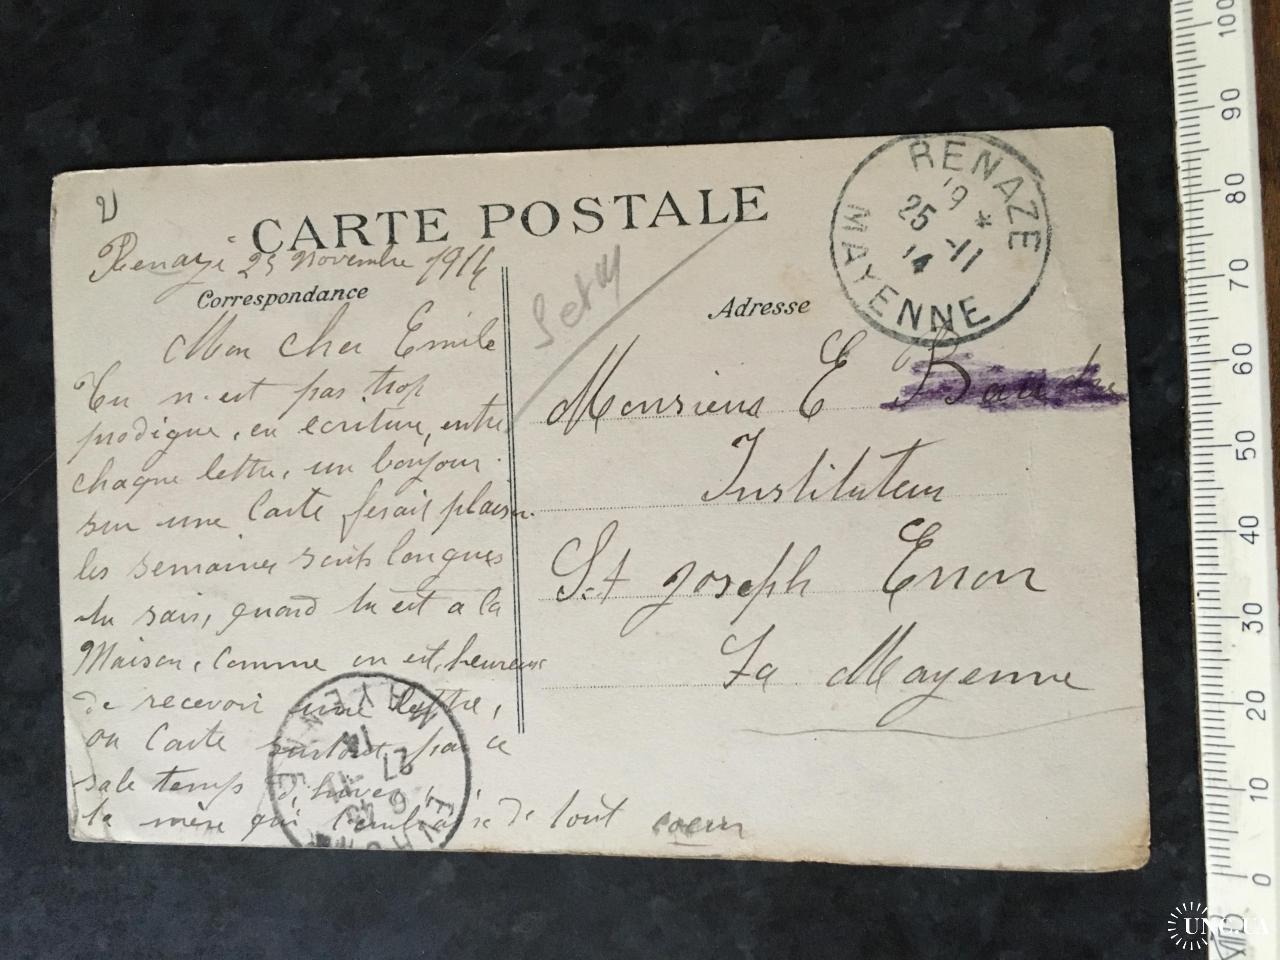 CARTE POSTALE
Renazé 25 novembre 1914
Correspondance
Mon cher Emile
Tu n'est pas trop
prodigue, en ecriture, entre
chaque lettre, un bonjour
sur une Carte ferait plaisir
les semaines sont longues
tu sais, quand tu est a la
Maison, comme on est, heureux
de recevoir une lettre,
ou Carte surtout par ce
sale temps d'hiver
ta mère qui t'embrasse de tout coeur
Adresse
Monsieur E
Instituteur
St Joseph Ernon
La Mayenne
RENAZE
19 *
25 -11
14
MAYENNE
MAYENNE
14
27
100
90
80
70
60
50
40
30
20
10
0
UNC.UA